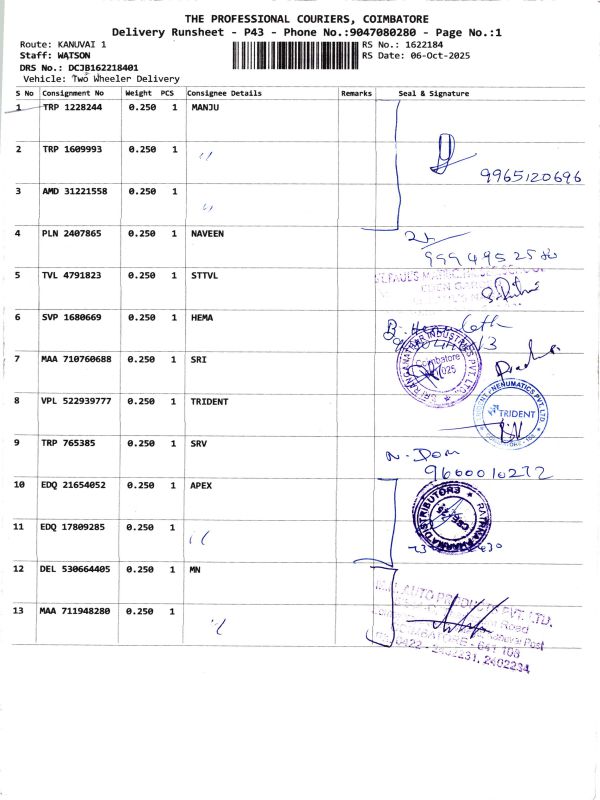 THE PROFESSIONAL COURIERS, COIMBATORE
Delivery Runsheet - P43 - Phone No.:9047080280 - Page No.:1
Route: KANUVAI 1 RS No.: 1622184
Staff: WATSON RS Date: 06-Oct-2025
DRS No.: DCJB162218401
Vehicle: Two Wheeler Delivery
S No Consignment No Weight PCS Consignee Details Remarks Seal & Signature
1 TRP 1228244 0.250 1 MANJU
2 TRP 1609993 0.250 1 〃
9965120696
3 AMD 31221558 0.250 1 〃
4 PLN 2407865 0.250 1 NAVEEN
5 TVL 4791823 0.250 1 STTVL
6 SVP 1680669 0.250 1 HEMA
7 MAA 710760688 0.250 1 SRI
SRI RANGANATHAR INDUSTRIES PVT. LTD.
Coimbatore
8 VPL 522939777 0.250 1 TRIDENT
TRIDENT PNEUMATICS PVT. LTD.
TRIDENT
9 TRP 765385 0.250 1 SRV
9600010272
10 EDQ 21654052 0.250 1 APEX
DISTRIBUTORS
11 EDQ 17809285 0.250 1 〃
12 DEL 530664405 0.250 1 MN
AUTO PRODUCTS PVT. LTD.
13 MAA 711948280 0.250 1 〃
Road
Kanuvai Post
COIMBATORE - 641 108
0422 - 2402231, 2402234